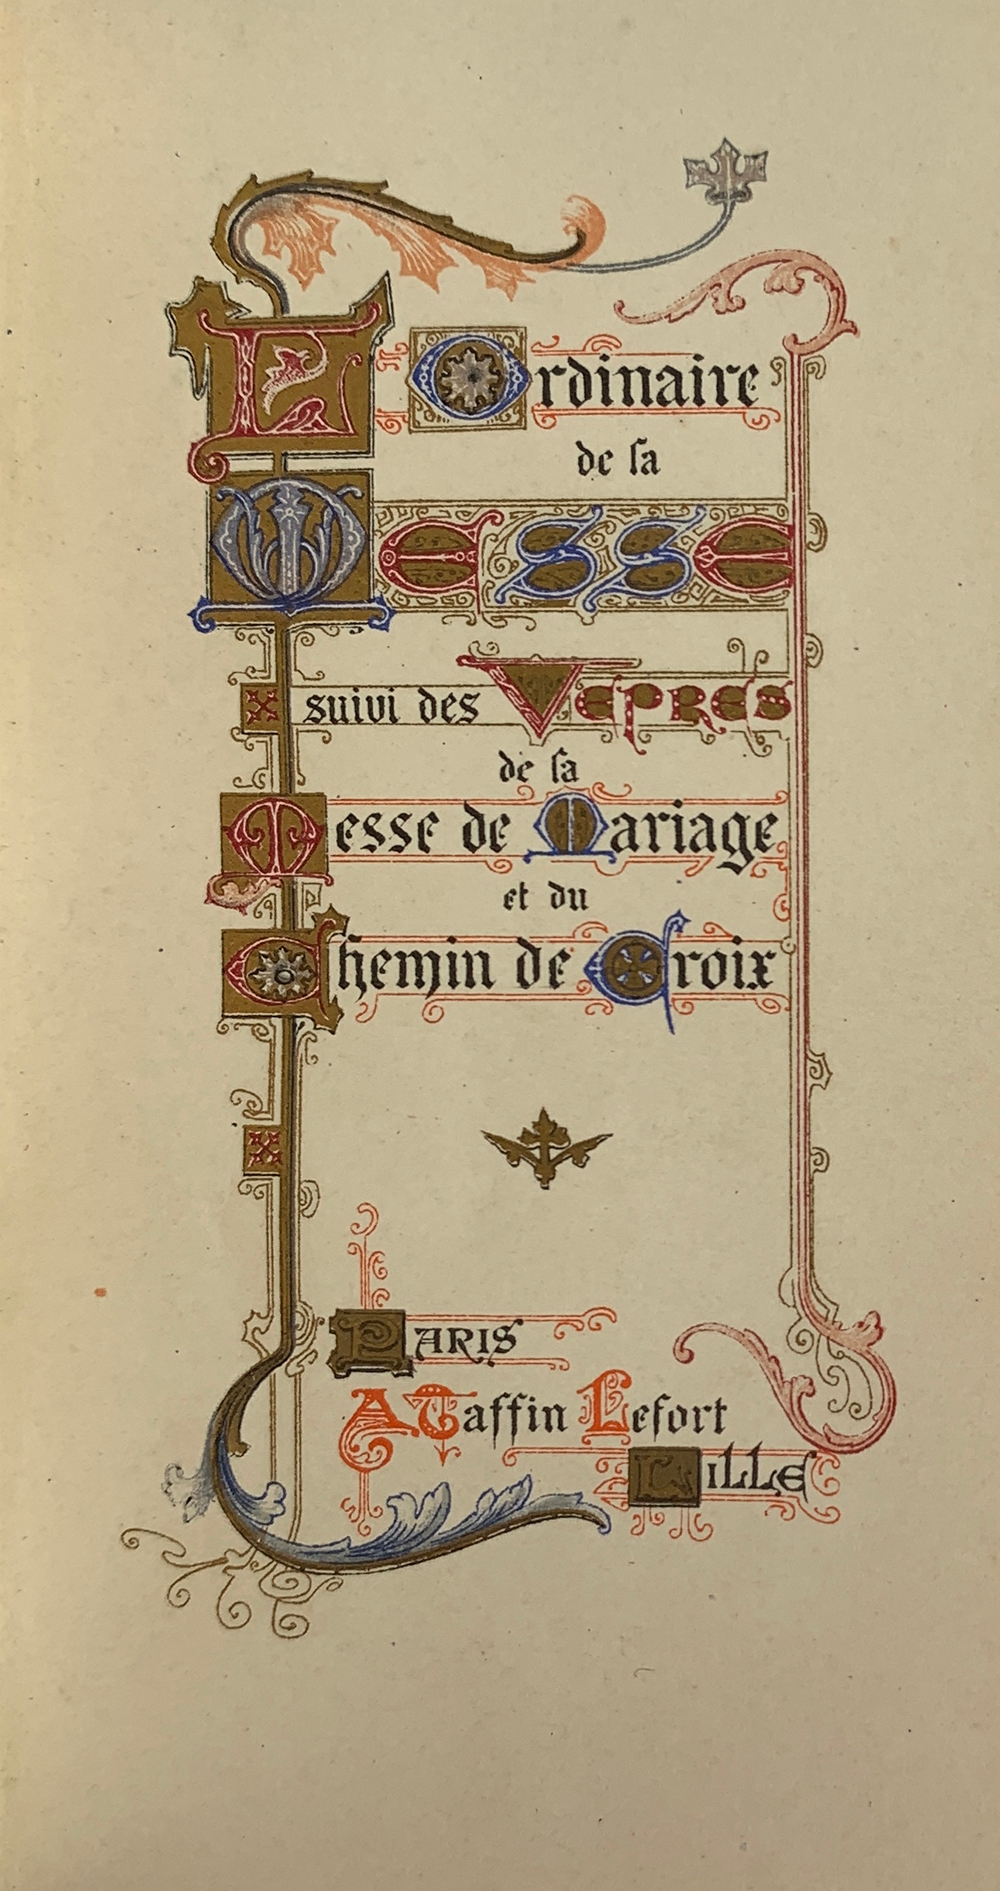 L Ordinaire
de la
Messe
suivi des Vepres
de la
Messe de Mariage
et du
Chemin de Croix
Paris
A. Taffin Lefort
Lille